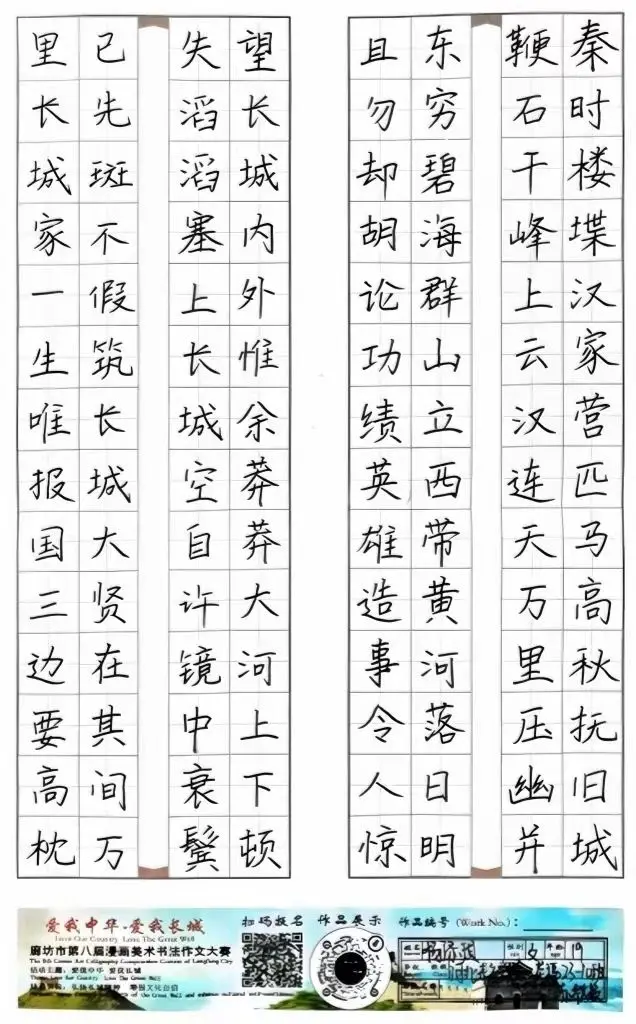 秦时楼堞汉家营匹马高秋抚旧城
鞭石干峰上云汉连天万里压幽并
东穷碧海群山立西带黄河落日明
且勿却胡论功绩英雄造事令人惊
望长城内外惟余莽莽大河上下顿
失滔滔塞上长城空自许镜中衰鬓
已先斑不假筑长城大贤在其间万
里长城家一生唯报国三边要高枕
爱我中华·爱我长城
Love Our Country Love The Great Wall
廊坊市第八届漫画美术书法作文大赛
扫码报名
作品展示
作品编号 (Work No.):
女
19